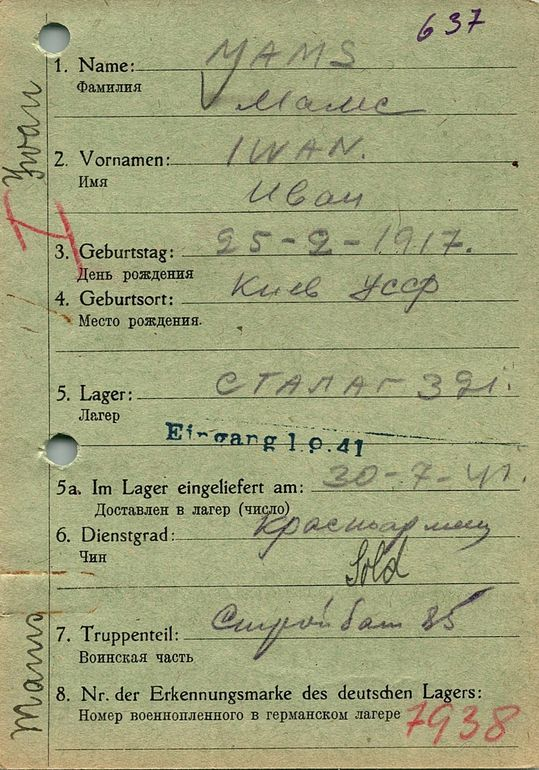 637
1. Name: MAMS
Фамилия
Мамс
2. Vornamen: IWAN.
Имя
Иван
3. Geburtstag: 25-2-1917.
День рождения
4. Geburtsort: Киев УССР
Место рождения.
5. Lager: СТАЛАГ 321.
Лагер
Eingang 1.9.41
5a. Im Lager eingeliefert am: 30-7-41.
Доставлен в лагер (число)
6. Dienstgrad: Красноармеец
Чин
Sold
7. Truppenteil: Стройбат 85
Воинская часть
8. Nr. der Erkennungsmarke des deutschen Lagers:
Номер военнопленного в германском лагере 7938
Mams Iwan